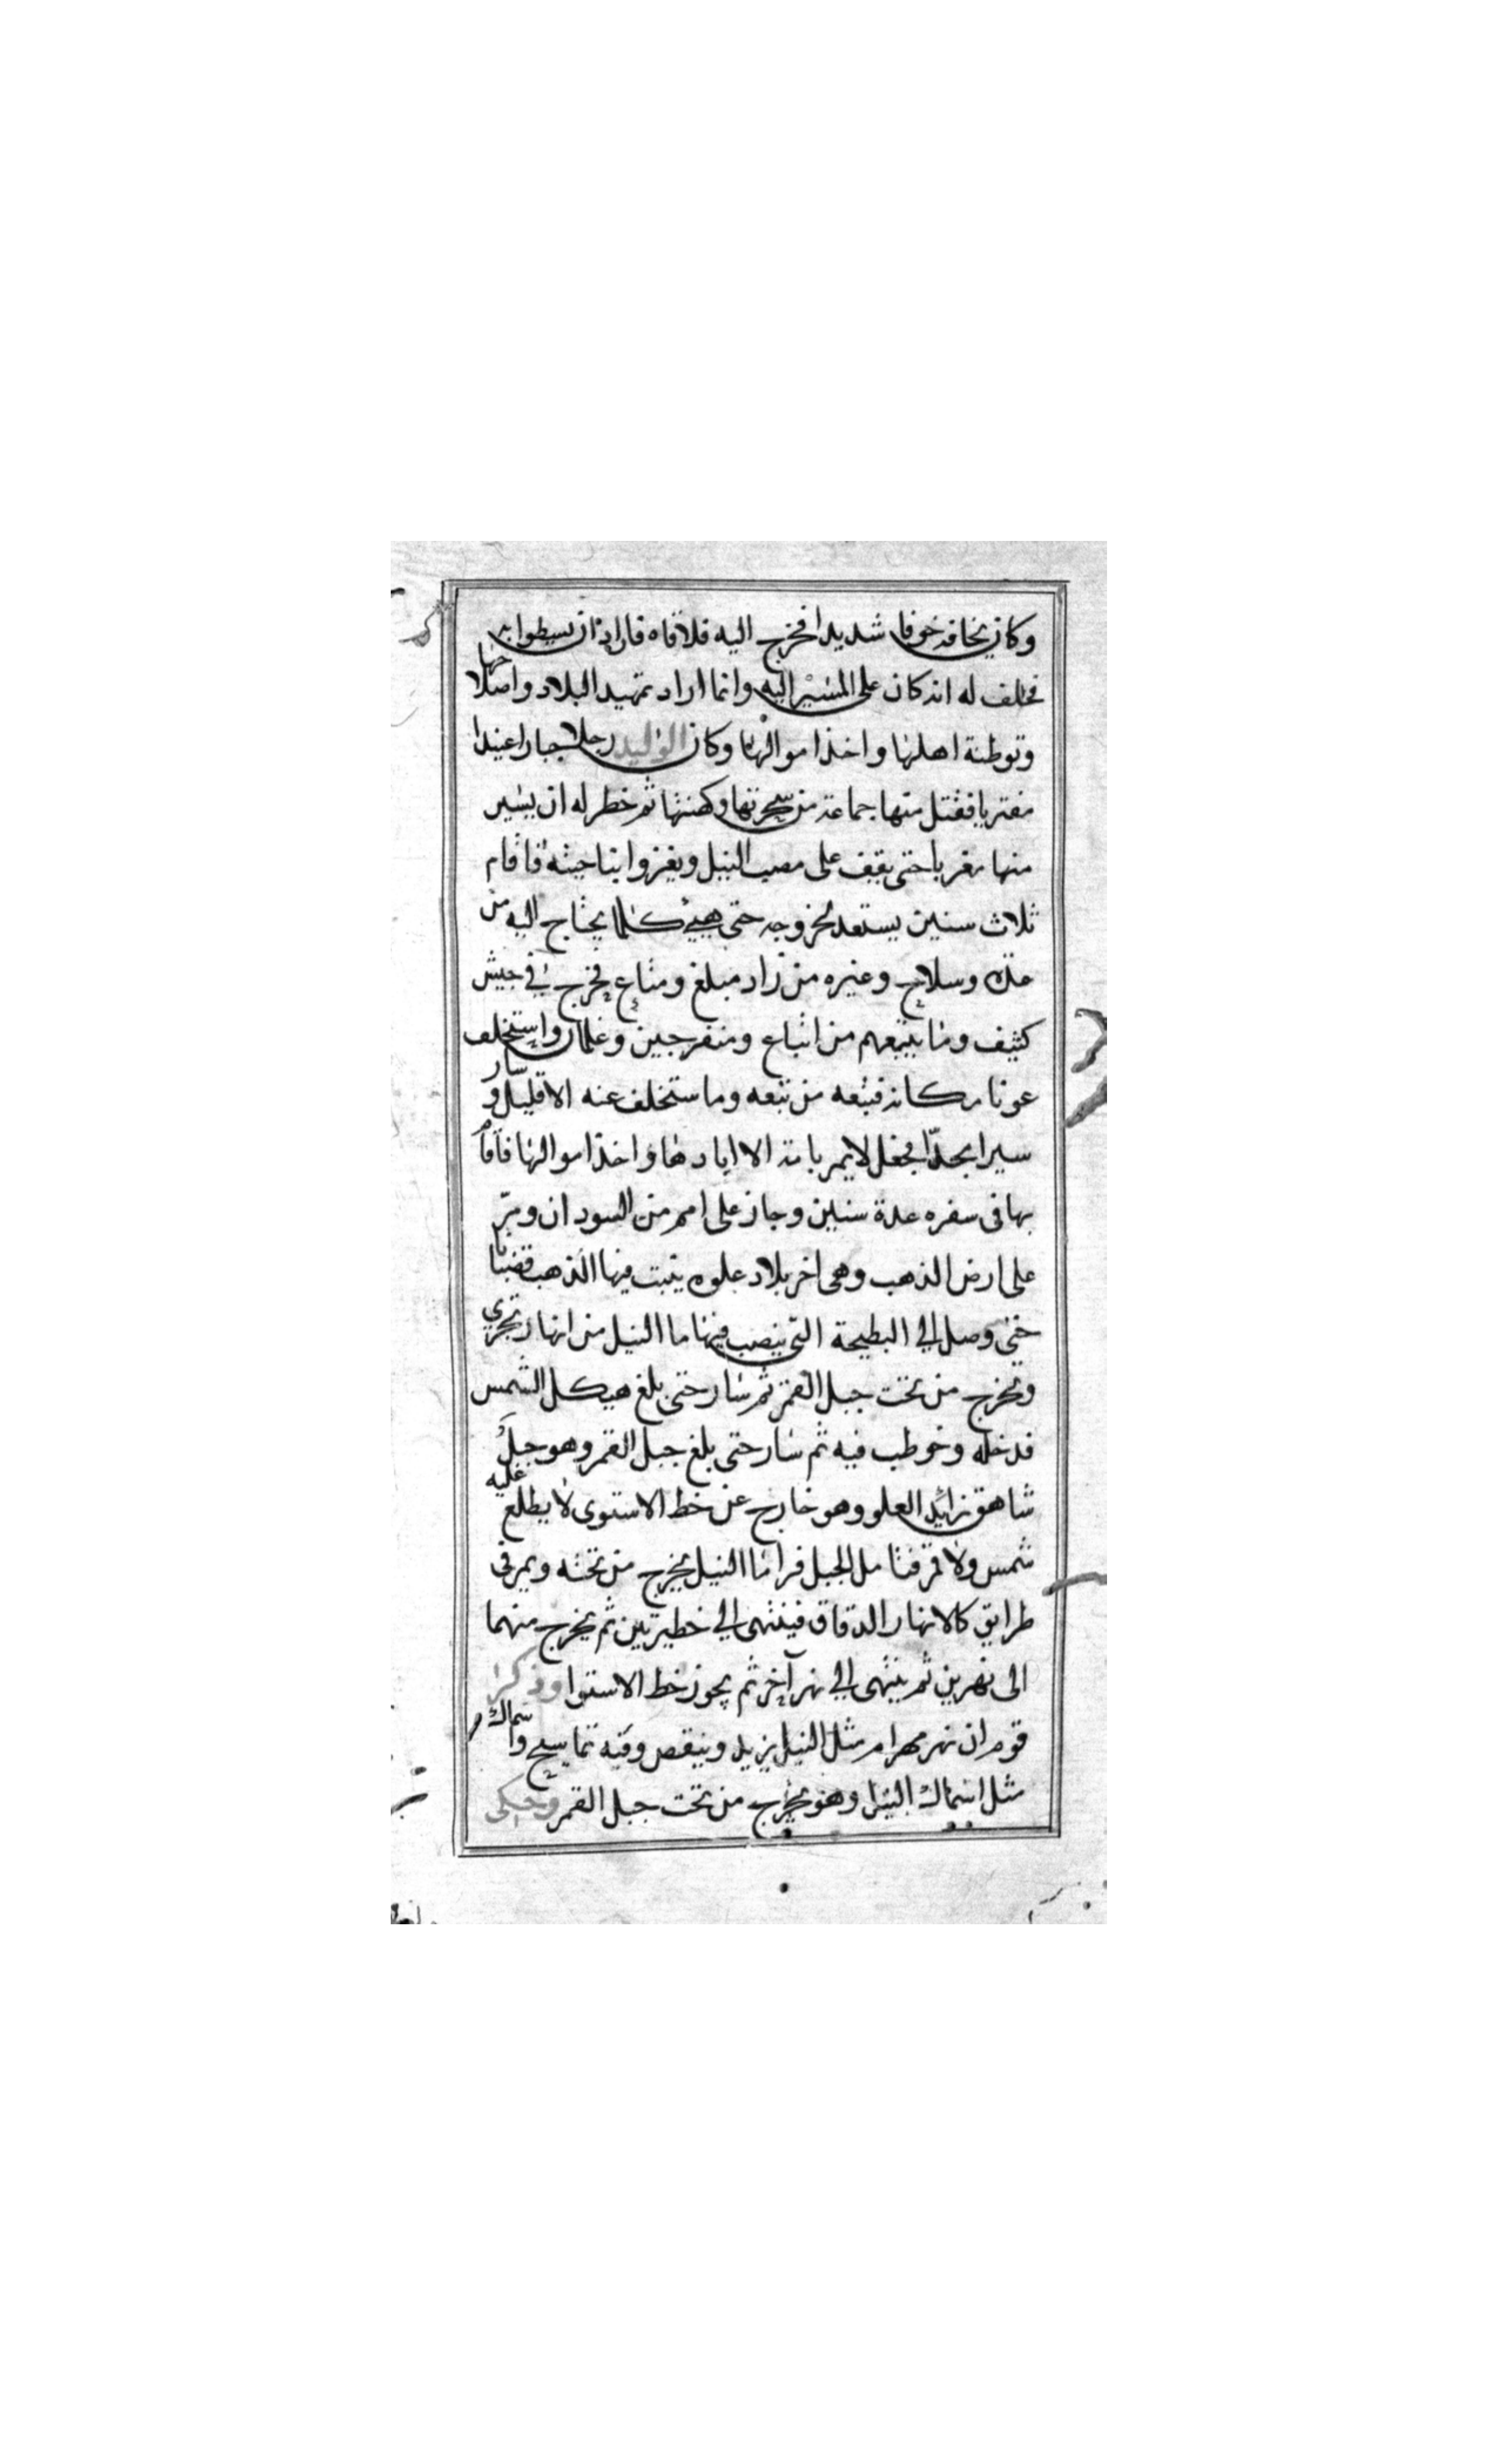 وكان يخافه خوفا شديدا فخرج اليه فلاقاه فاراد ان يسطوا به
فحلف له انه كان على المسير اليه وانما اراد تمهيد البلاد واصلاحها
وتوطئة اهلها واخذ اموالها وكان الوليد رجلا جبارا عنيدا
مفتريا فقتل منها جماعة من سحرتها وكهنتها ثم خطر له ان يسير
منها مغربا حتى يقف على مصب النيل ويغزوا بناحيته فاقام
ثلاث سنين يستعد لخروجه حتى هيئ كلما يحتاج اليه من
عدة وسلاح وغيره من زاد مبلغ ومتاع فخرج في جيش
كثيف وما يتبعهم من اتباع ومتفرجين وغلمان واستخلف
عونا مكانه فتبعه من تبعه وما ستخلف عنه الا قليل وسار
سيرا بجد الجفل لا يمر بامة الا ابادها واخذ اموالها فاقام
بها فى سفره عدة سنين وجاز على امم من السودان ومر
على ارض الذهب وهى اخر بلاد علوه ينبت فيها الذهب قضبانا
حتى وصل الي البطيحة التي ينصب فيها ما النيل من انهار تجري
وتخرج من تحت جبل القمر ثم سار حتى بلغ هيكل الشمس
فدخله وخوطب فيه ثم سار حتى بلغ جبل القمر وهو جبل
شاهق زائد العلو وهو خارج عن خط الاستوى لا يطلع عليه
شمس ولا قمر فتامل الجبل فراما النيل يخرج من تحته ويمر فى
طرايق كالانهار الدقاق فينتهى الي خطيرتين ثم يخرج منهما
الى نهرين ثم ينتهى الي نهر آخر ثم يجوز خط الاستوا وذكر
قوم ان نهر مهرام مثل النيل يزيد وينقص وفيه تماسيح واسماك
مثل اسماك النيل وهو يخرج من تحت جبل القمر وحكى